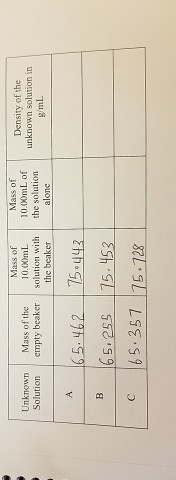 Unknown
Solution
Mass of the
empty beaker
Mass of
10.00mL
solution with
the beaker
Mass of
10.00mL of
the solution
alone
Density of the
unknown solution in
g/mL
A
65.462
75.443
B
65.255
75.453
C
65.357
75.728